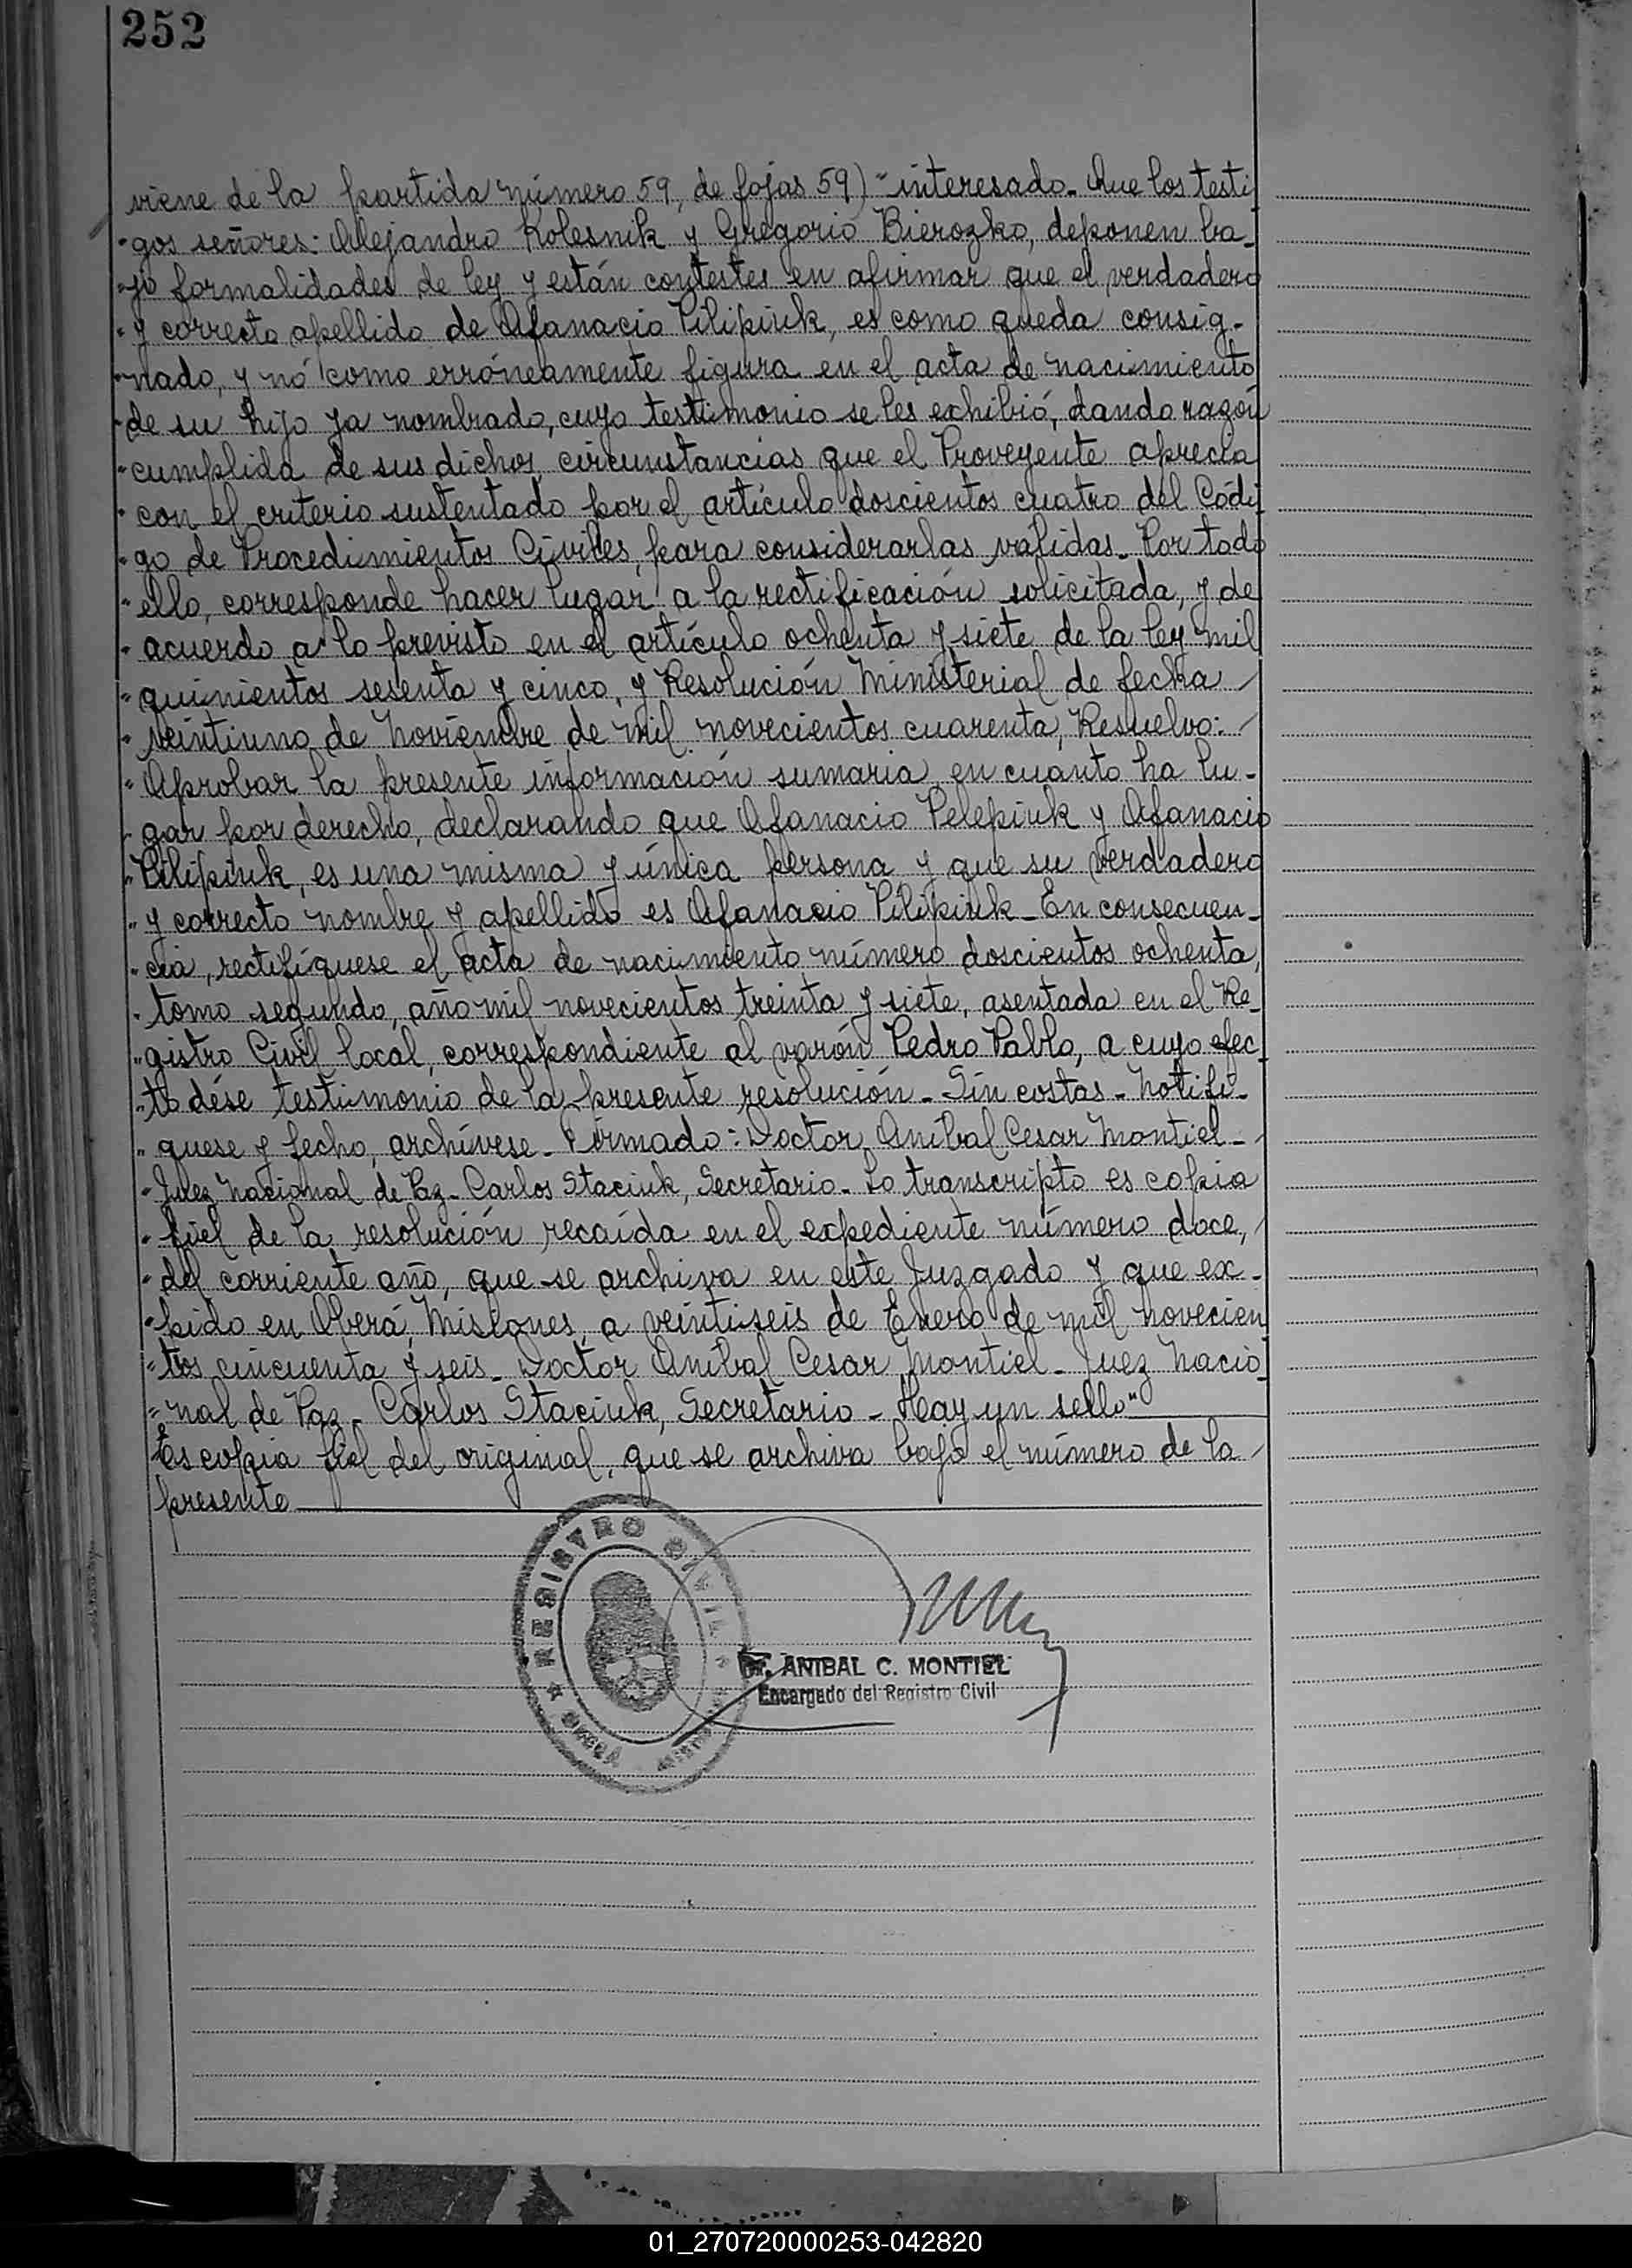 252
viene de la partida número 59, de fojas 59) "interesado. Que los testi
"gos señores: Alejandro Kolesnik y Gregorio Bierozko, deponen ba-
"jo formalidades de ley y están contestes en afirmar que el verdadero
"y correcto apellido de Afanacio Pilipiuk, es como queda consig-
"nado, y nó como erróneamente figura en el acta de nacimiento
"de su hijo ya nombrado, cuyo testimonio se les exhibió, dando razón
"cumplida de sus dichos, circunstancias que el Proveyente aprecia
"con el criterio sustentado por el artículo doscientos cuatro del Códi
"go de Procedimientos Civiles, para considerarlas validas. Por todo
"ello, corresponde hacer lugar a la rectificación solicitada, y de
"acuerdo a lo previsto en el artículo ochenta y siete de la ley mil
"quinientos sesenta y cinco, y Resolución Ministerial de fecha
"veintiuno de Noviembre de mil novecientos cuarenta, Resuelvo:
"Aprobar la presente información sumaria en cuanto ha lu-
"gar por derecho, declarando que Afanacio Pelepiuk y Afanacio
"Pilipiuk, es una misma y única persona y que su verdadero
"y correcto nombre y apellido es Afanacio Pilipiuk_ En consecuen-
"cia, rectifíquese el acta de nacimiento número doscientos ochenta,
"tomo segundo, año mil novecientos treinta y siete, asentada en el Re-
"gistro Civil local, correspondiente al varón Pedro Pablo, a cuyo efec-
"to dése testimonio de la presente resolución_ Sin costas_ Notifí-
"quese y fecho, archívese_ Firmado: Doctor Aníbal Cesar Montiel_
"Juez Nacional de Paz_ Carlos Staciuk, Secretario_ Lo transcripto es copia
"fiel de la resolución recaída en el expediente número doce,
"del corriente año, que se archiva en este Juzgado y que ex-
"pido en Oberá, Misiones, a veintiseis de Enero de mil novecien
"tos cincuenta y seis_ Doctor Aníbal Cesar Montiel_ Juez Nacio_
"nal de Paz_ Carlos Staciuk, Secretario_ Hay un sello"
Es copia fiel del original, que se archiva bajo el número de la
presente
REGISTRO CIVIL
OBERÁ MISIONES
Dr. ANIBAL C. MONTIEL
Encargado del Registro Civil
01_270720000253-042820